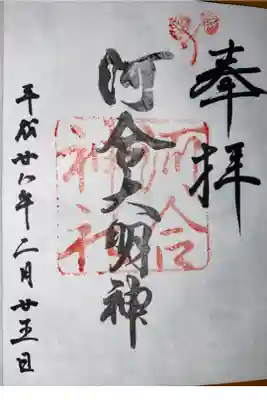 奉拝
河合大明神
河合
神社
平成廿八年二月廿五日